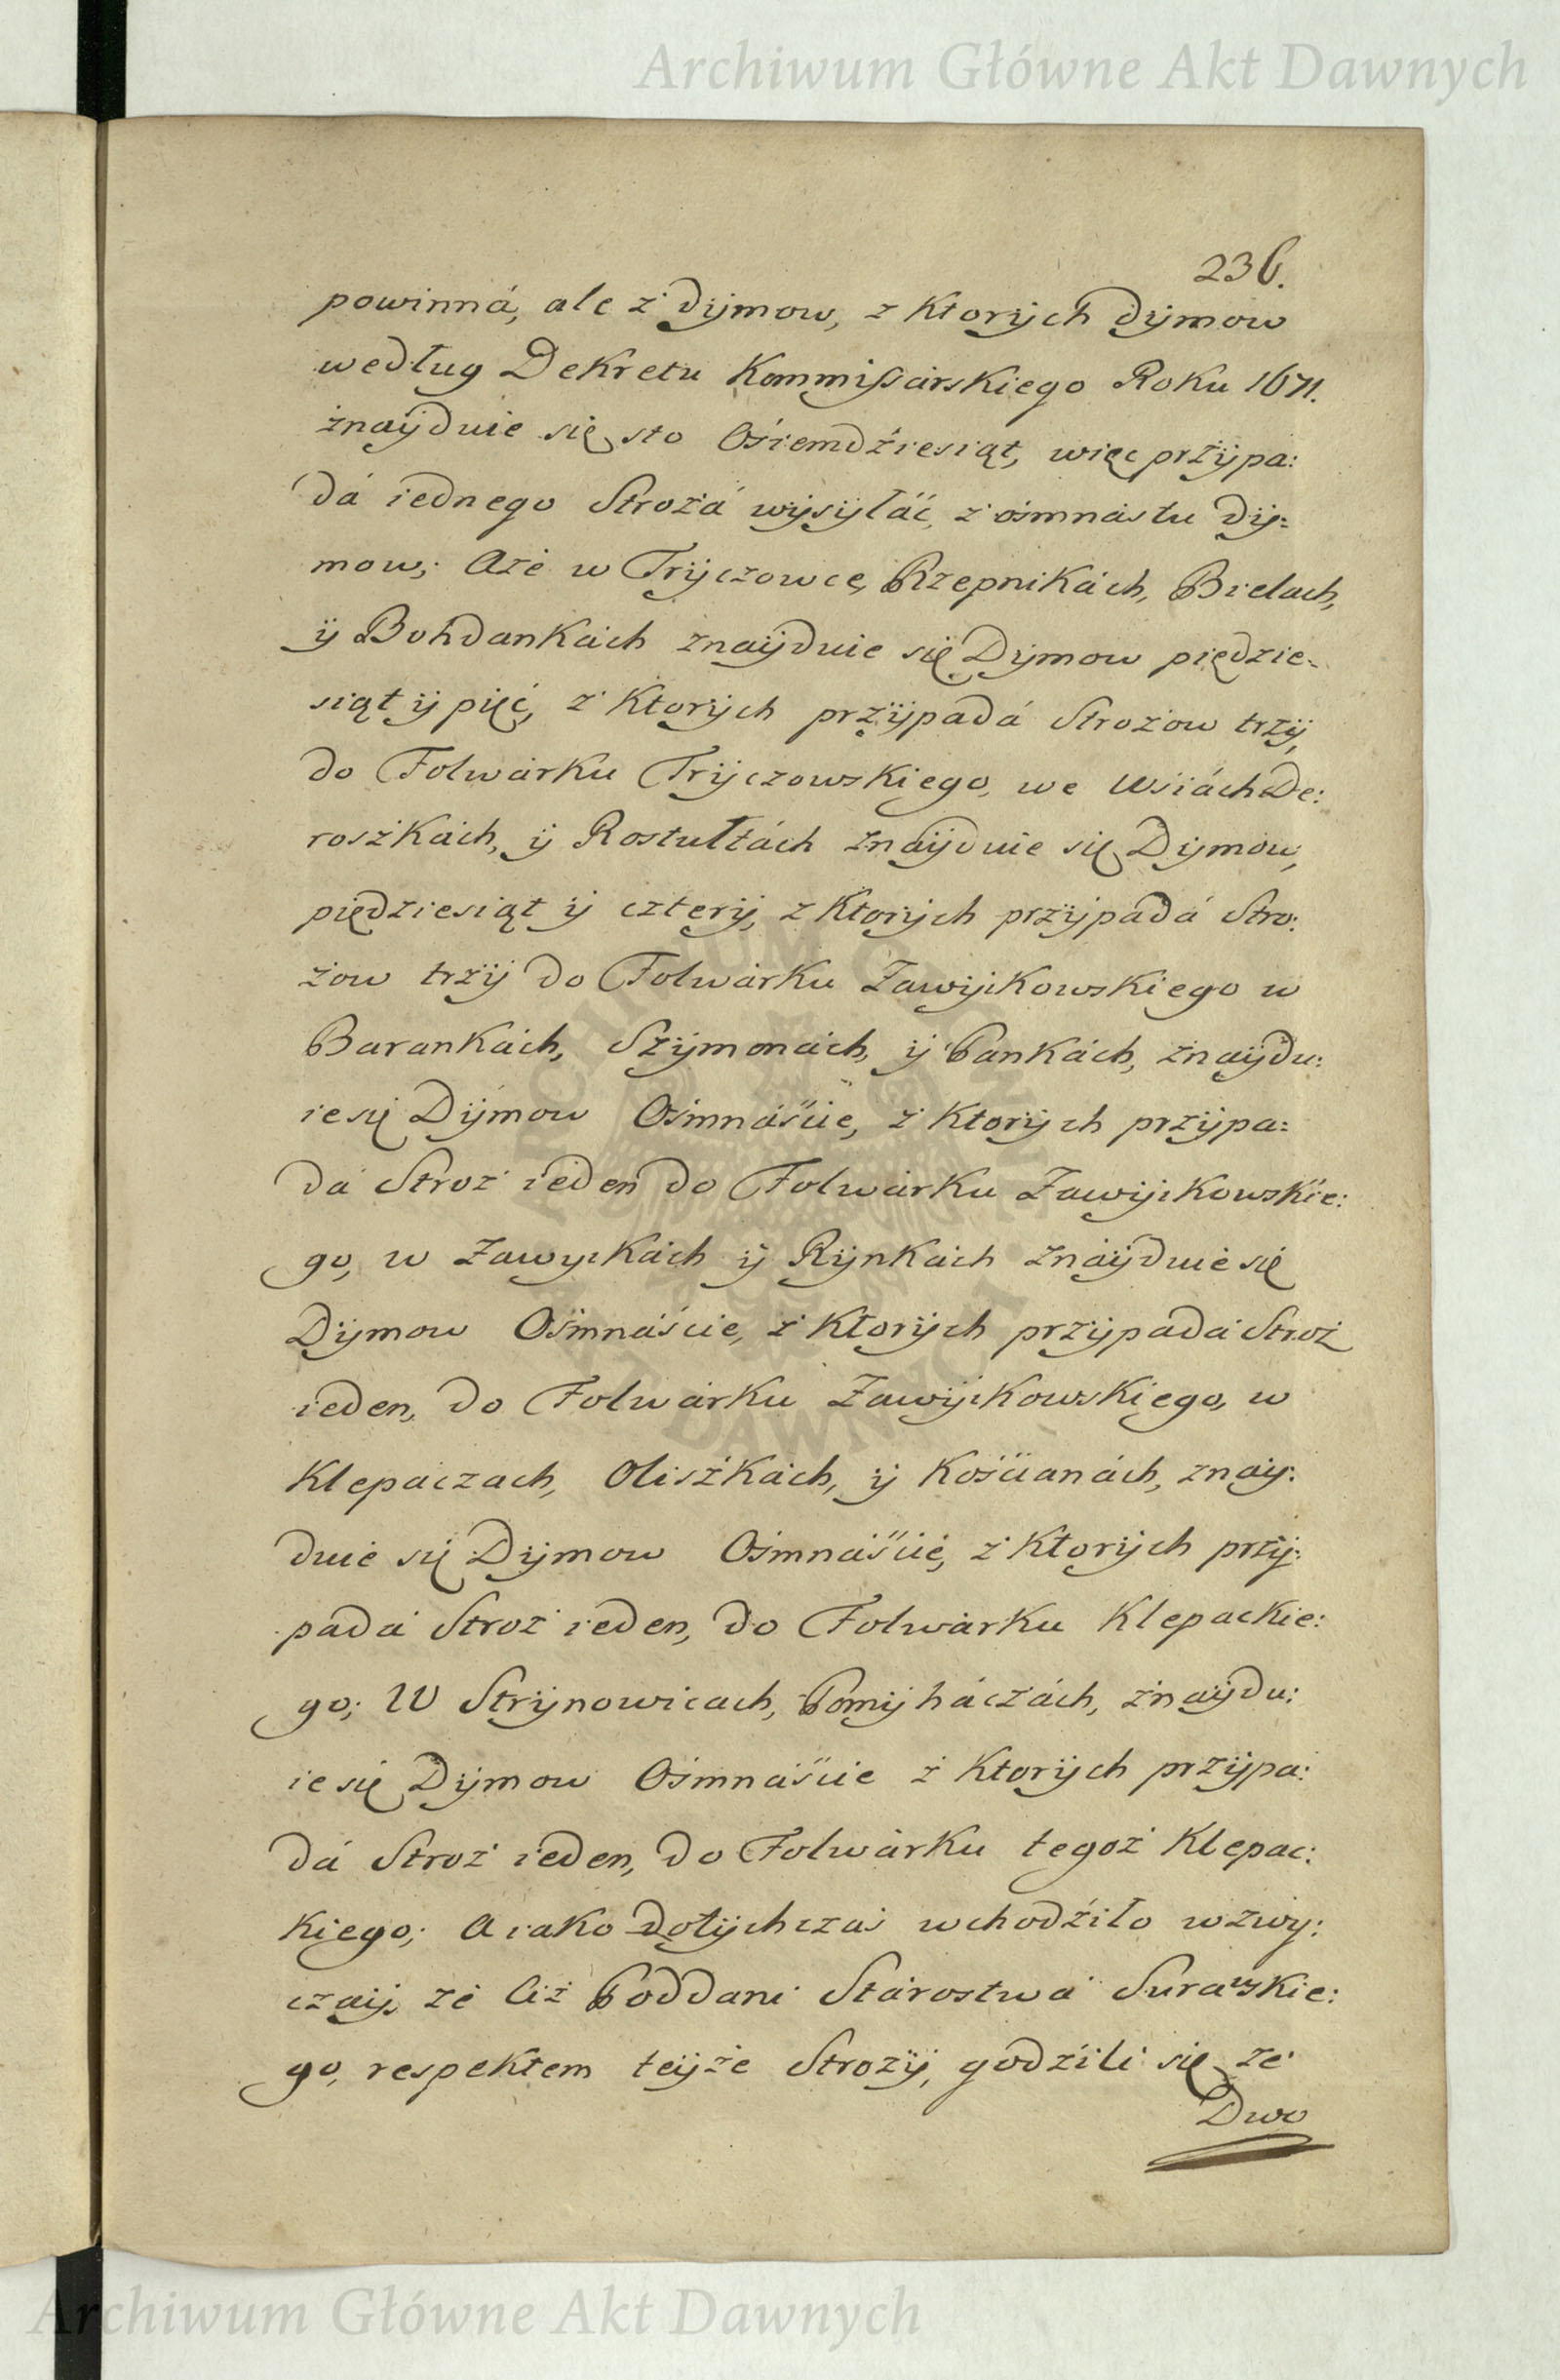 Archiwum Główne Akt Dawnych
236.
powinná, ale z dymow, z Ktorych dymow
według Dekretu Kommissarskiego Roku 1671.
znayduie się sto Ośiemdźiesiąt, więc przypa:
dá iednego Strożá wysyłáć, z ośmnástu dy:
mow; Aże w Tryczowce, Rzepnikách, Bielach,
y Bohdankách znayduie się Dymow piędzie:
siąt y pięć, z Ktorych przypadá Strożow trzy,
do Folwárku Tryczowskiego, we Wśiách De:
roszkách, y Rostułtách znayduie się Dymow,
piędziesiąt y cztery, z Ktorych przypadá Stro:
żow trzy do Folwárku Zawykowskiego w
Barankách, Szymonách, y Pankách, znaydu:
ie się Dymow Ośmnáście, z Ktorych przypa:
dá Stroż ieden do Folwárku Zawykowskie:
go, w Zawykách y Rynkách znayduie się
Dymow Ośmnáście, z Ktorych przypadá Stroż
ieden, do Folwárku Zawykowskiego, w
Klepáczach, Oliszkách, y Kośćianách, znay:
duie się Dymow Ośmnáście, z Ktorych przy:
padá Stroż ieden, do Folwárku Klepackie:
go; W Strynowicach, Pomyháczách, znaydu:
ie się Dymow Ośmnáście z Ktorych przypa:
dá Stroż ieden, do Folwárku tegoż Klepac:
kiego; A iako dotychczás wchodźiło w zwy:
czay, że Ciż Poddani Stárostwá Surazskie:
go, respektem teyże Stroży, godźili się ze
Dwo
Archiwum Główne Akt Dawnych